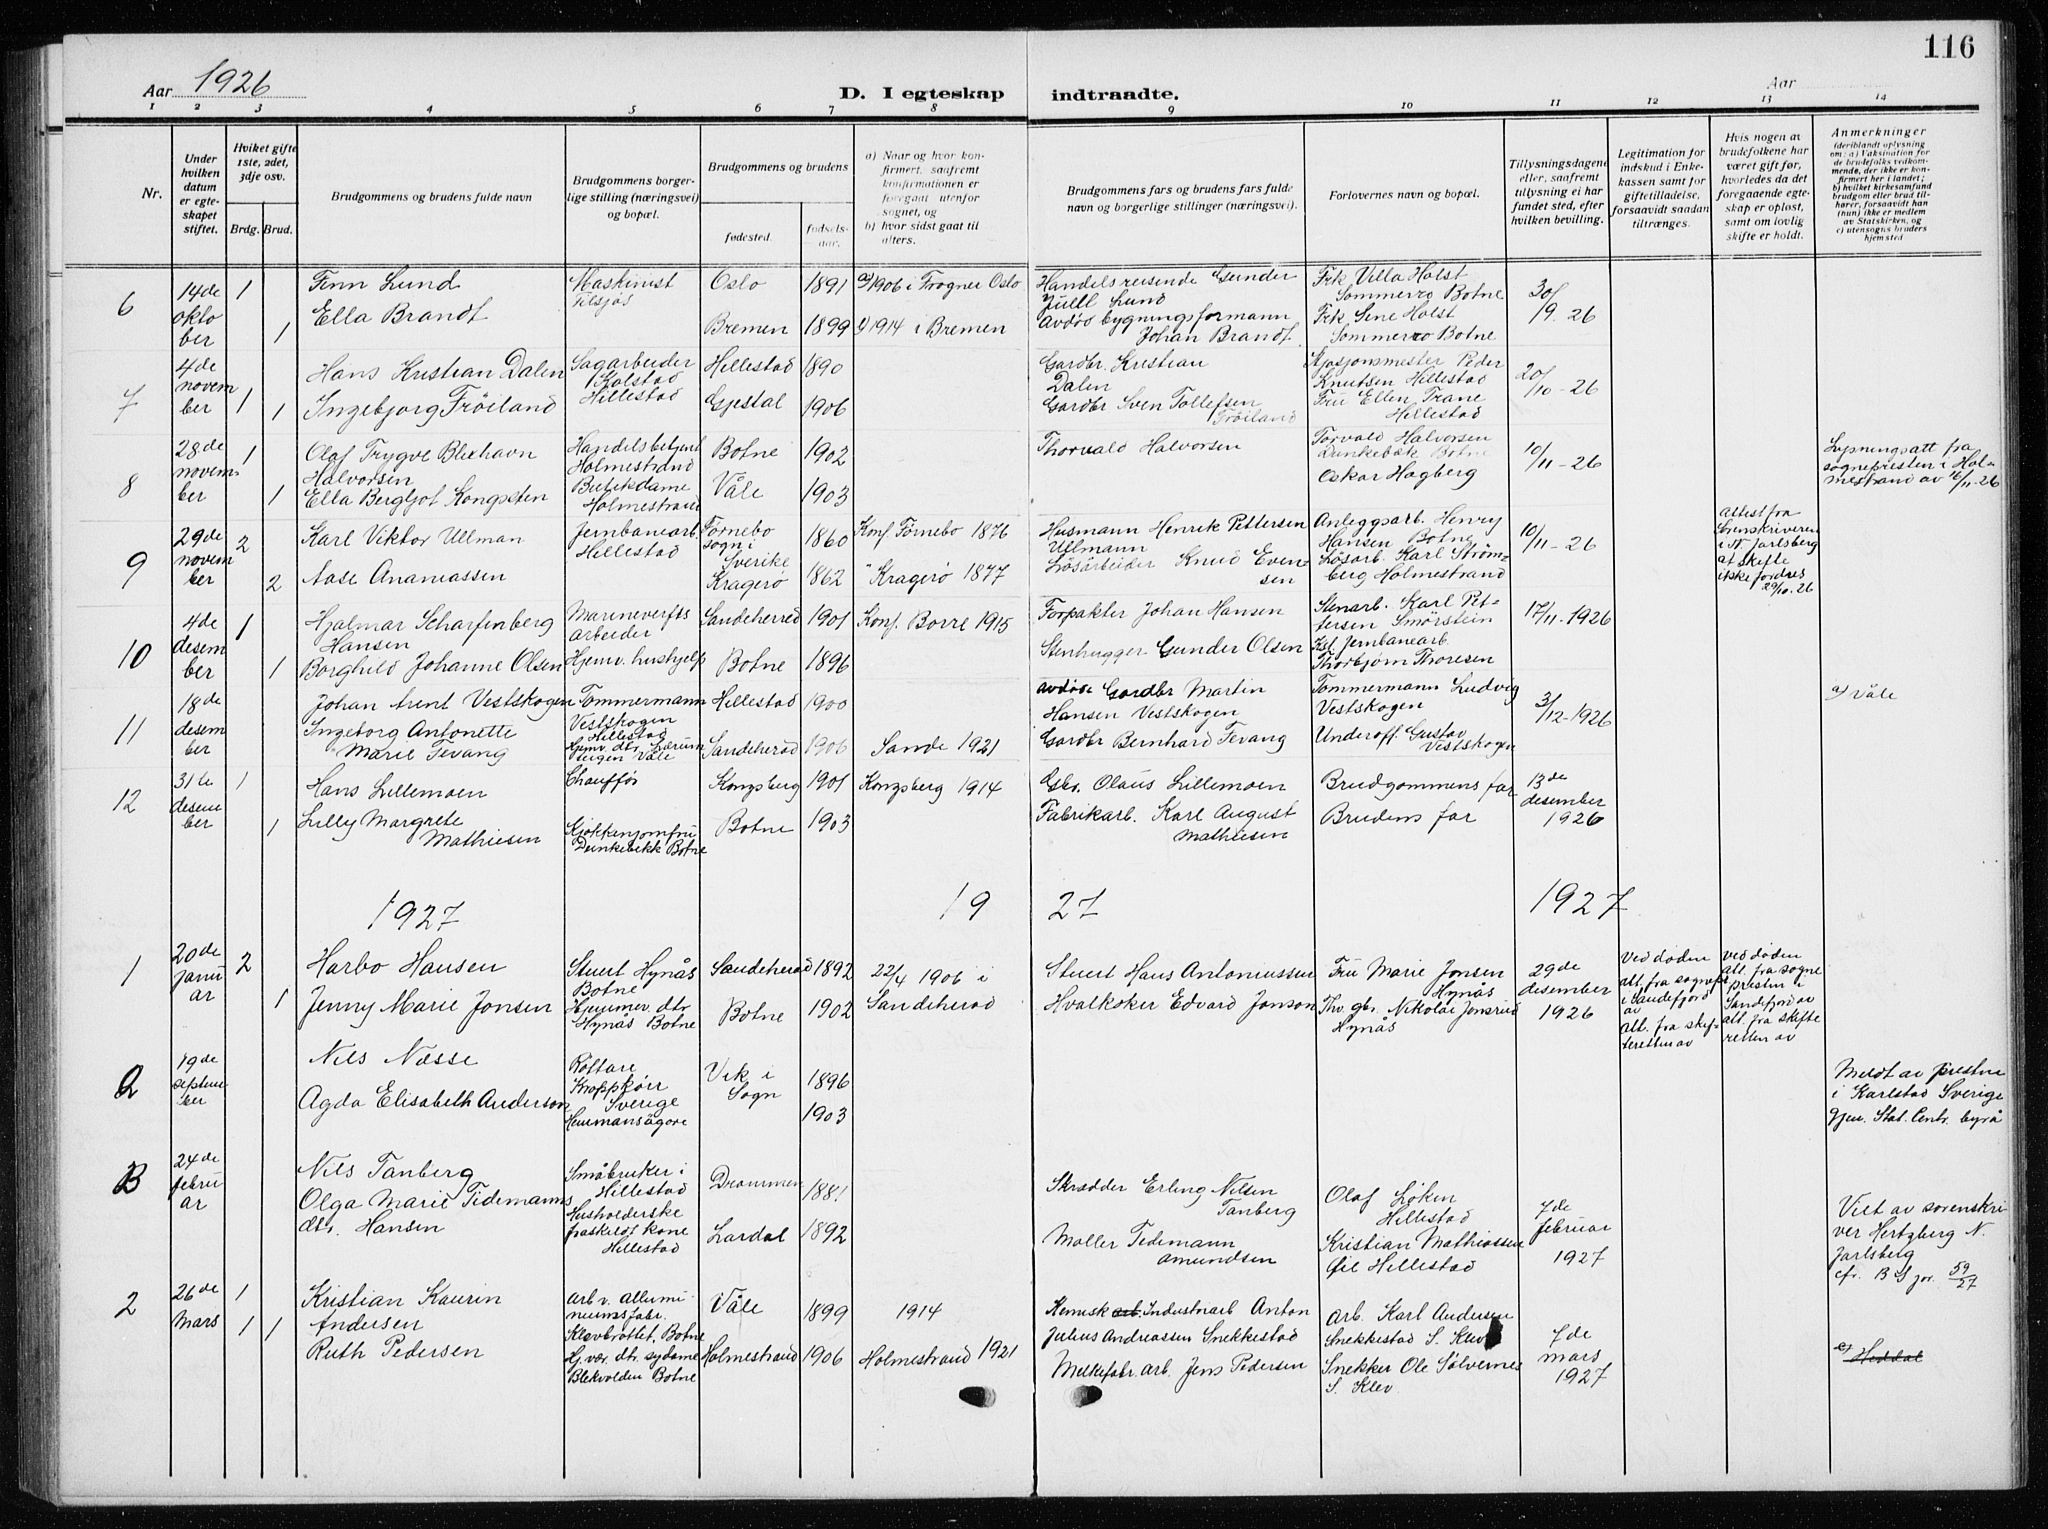 116
Aar 1926
D. I egteskap indtraadte.
Aar
1 2 3 4 5 6 7 8 9 10 11 12 13 14
Nr.
Under hvilken datum er egteskapet stiftet.
Hviket gifte 1ste, 2det, 3dje osv.
Brdg. Brud.
Brudgommens og brudens fulde navn
Brudgommens borgerlige stilling (næringsvei) og bopæl.
Brudgommens og brudens
fødested.
fødselsaar.
a) Naar og hvor konfirmert, saafremt konfirmationen er foregaat utenfor sognet, og
b) hvor sidst gaat til alters.
Brudgommens fars og brudens fars fulde navn og borgerlige stillinger (næringsvei).
Forlovernes navn og bopæl.
Tillysningsdagene eller, saafremt tillysning ei har fundet sted, efter hvilken bevilling.
Legitimation for indskud i Enkekassen samt for giftetilladelse, forsaavidt saadan tiltrænges.
Hvis nogen av brudefolkene har været gift før, hvorledes da det foregaaende egteskap er opløst, samt om lovlig skifte er holdt.
Anmerkninger (deriblandt oplysning om: a) Vaksination for de brudefolks vedkommende, der ikke er konfirmert her i landet; b) hvilket kirkesamfund brudgom eller brud tilhører, forsaavidt han (hun) ikke er medlem av Statskirken, og c) utensogns bruders hjemsted
6
14de oktober
1
Finn Lund
Maskinist tilsjøs
Oslo
1891
a) 1906 i Frogner Oslo
Handelsreisende Gunder Juell Lund
Frk Villa Holst Sommerro Botne
30/9. 26
1
Ella Brandt
Bremen
1899
1914 i Bremen
Avdøs bygningsformann Johan Brandt
Frk Sene Holst Sommerro Botne
7
4de november
1
Hans Kristian Dalen
Sagarbeider Kolstad Hillestad
Hillestad
1890
Gardbr. Kristian Dalen
Stasjonsmester Peder Knutsen Hillestad
20/10-26
1
Ingebjorg Frøiland
Gjestal
1906
Gardbr Sven Tollefsen Frøiland
Fru Ellen Trane Hillestad
8
28de november
1
Olaf Trygve Blexhavn Halvorsen
Handelsbetjent Holmestrand
Botne
1902
Thorvald Halvorsen
Torvald Halvorsen Dunkebæk Botne
10/11-26
Lysningsatt fra sognepresten i Holmestrand av 16/11-26
1
Ella Bergljot Kongsten
Butikdame Holmestrand
Våle
1903
Oskar Hagberg
9
29de november
2
Karl Viktor Ullman
Jernbanearb. Hillestad
Førnebo sogn i Sverike
1860
Konf. Førnebo 1876
Husmann Henrik Pettersen Ullmann
Anleggsarb. Henry Hansen Botne
10/11-26
Attest fra Sorenskriveren i N. Jarlsberg at skifte ikke fordres 29/10.26
2
Aase Ananiassen
Kragerø
1862
" Kragerø 1877
Løsarbeider Knud Evensen
Løsarb. Karl Strømberg Holmestrand
10
4de desember
1
Hjalmar Scharfenberg Hansen
Marineverfts arbeider
Sandeherred
1901
Konf. Borre 1915
Forpakter Johan Hansen
Stenarb. Karl Pettersen Smørstein
17/11-1926
1
Borghild Johanne Olsen
Hjemv. hushjelp
Botne
1896
Stenhugger Gunder Olsen
Jernbanearb. Thorbjørn Thoresen
11
18de desember
Johan Arent Vestskogen
Tømmermann Vestskogen Hillestad
Hillestad
1900
avdøde Gardbr Martin Hansen Vestskogen
Tømmermann Ludvig Vestskogen
3/12-1926
a) Våle
Ingeborg Antonette Marie Tevang
Hjemv. dtr. Lærum Våle
Sandeherad
1906
Sande 1921
Gardbr Bernhard Tevang
Underoff. Gustav Vestskogen
12
31te desember
1
Hans Lillemoen
Chauffør
Kongsberg
1901
Kongsberg 1914
Gbr. Olaus Lillemoen
Brudgommens far
13de desember 1926
1
Lilly Margrete Mathiesen
Kjøkkenjomfru Dunkebekk Botne
Botne
1903
Fabrikarb. Karl August Mathiesen
Brudens far
1927 19 27 1927
1
20de januar
2
Harbo Hansen
Stuert Hynås Botne
Sandeherad
1892
22/4 1906 i Sandeherad
Stuert Hans Antoniussen
Fru Marie Jonsen Hynås
29de desember 1926
Ved døden att. fra sognepr. i Sandefjord av
att. fra skifteretten av
ved døden att. fra sognepresten i Sandefjord av
att. fra skifteretten av
1
Jenny Marie Jonsen
Hjemmev. dtr. Hynås Botne
Botne
1902
Hvalkoker Edvard Jonson
Thv. gbr. Nikolai Jonsrud Hynås
2
19de september
Nils Næsse
Rottare Kroppkärr Sverige
Vik i Sogn
1896
Meldt av presten i Karlstad Sverige gjen. Stat. Centr. byrå
Agda Elisabeth Anderson
Hemmansägare
1903
B
24de februar
Nils Tanberg
Småbruker i Hillestad
Drammen
1881
Skrædder Erling Nilsen Tanberg
Olaf Løken Hillestad
7de februar 1927
Viet av sorenskriver Hertzberg N. Jarlsberg
cfr. B S jor. 59/27
Olga Marie Tidemanns dtr. Hansen
Husholderske fraskildt kone Hillestad
Lardal
1892
Møller Tidemann Amundsen
Kristian Mathiassen Øil Hillestad
2
26de Mars
1
1
Kristian Kaurin Andersen
arb v. alluminiumsfabr. Klevbrottet, Botne
Våle
1899
1914
Kemisk arb. Industriarb Anton Julius Andreassen Snekkestad
Arb. Karl Andersen Snekkestad S. Klev
7de mars 1927
1
Ruth Pedersen
Hj. vær. dtr. sydame Blekvolden Botne
Holmestrand
1906
Holmestrand 1921
Melkefabr. arb. Jens Pedersen
Snekker Ole Sølvernes S. Klev
Heddal